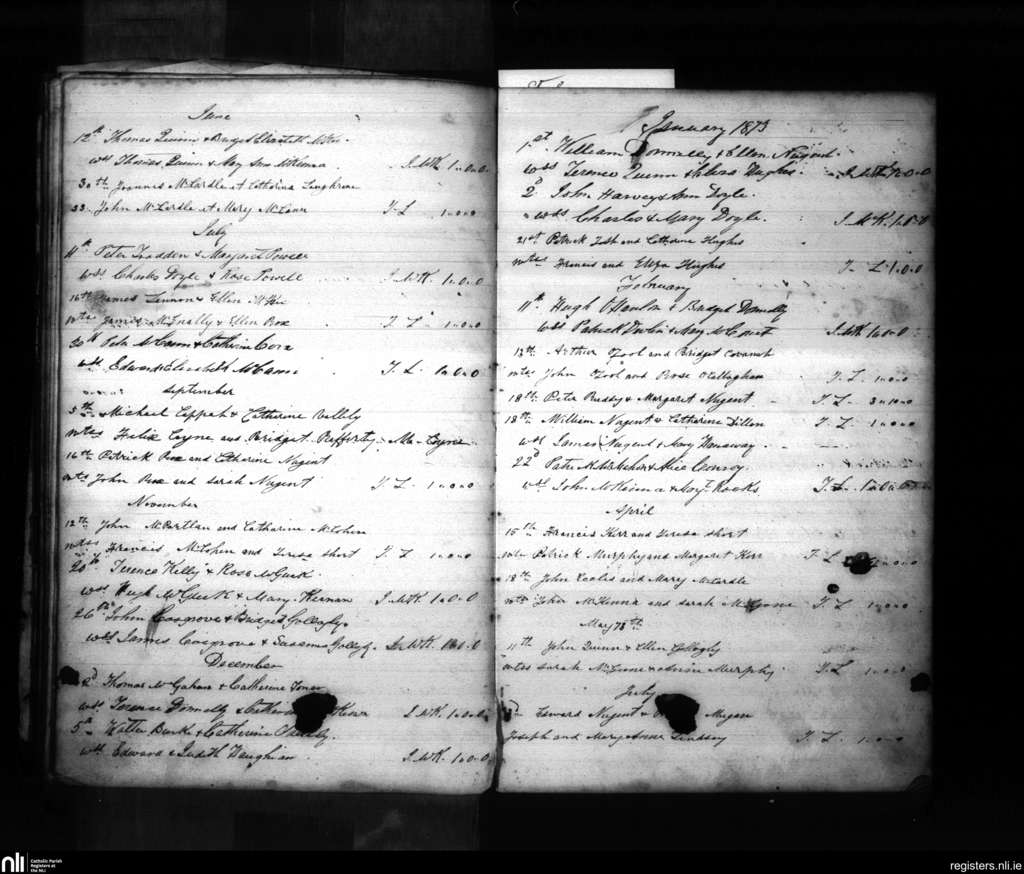 June
12th Thomas Quinn & Bridget Elizabeth McKee
wss Thomas Quinn & May Ann McKenna J. McK. 1-0-0
30th Joannes McCardle et Catherina Loughran
23 John McCardle et Mary McCann T. L 1-0-0
July
11th Peter Fradden & Margaret Powell
wss Charles Doyle & Rose Powell J. McK. 1-0-0
16th James Lennon & Ellen McKee
wtss James McEnally & Ellen Roe T. L 1-0-0
20th Peter McCann & Catherine
wss Edward Elizabeth McCann T. L. 1-0-0
September
5th Michael Cappah & Catherine Vallely
wtss Felix Coyne and Bridget Rafferty Mc Coyne
16th Patrick Roe and Catharine Nugent
wts John Roe and Sarah Nugent T. L 1-0-0
November
12th John McPartlan and Catharine McCohen
wtss Francis McCohen and Teresa Short T. L 1-0-0
20th Terence Kelly & Rose McGurk
wss Hugh McGurk & Mary Kernan J. McK. 1-0-0
26th John Cosgrove & Bridget Gollogly
wss James Cosgrove & Susanna Gollogly J. McK. 1-0-0
December
2d Thomas McGahan & Catherine Toner
wss Terence Donnelly & Catherine J. McK. 1-0-0
5th Walter Burke & Catherine
wss Edward & Judith Vaughan J. McK. 1-0-0
January 1873
1st William Donnelly & Ellen Nugent
wss Terence Quinn & Hughes J. McK. 1-0-0
2d John Harvey & Ann Doyle
wss Charles & Mary Doyle J. McK. 1-0-0
21st Patrick Tosh and Catharine Hughes
wtss Francis and Eliza Hughes T. L 1-0-0
February
11th Hugh O'Hanlon & Bridget Donnelly
wss Patrick Devlin & Mary McCourt J. McK. 1-0-0
13th Arthur O'Tool and Bridget Cavanah
wtss John O'Tool and Rose O'Callaghan T. L 1-0-0
18th Peter Preddy & Margaret Nugent T. L. 3-10-0
18th William Nugent & Catherine Dillon T. L 1-0-0
wss James Nugent & Mary Hanaway
22d Patrick & Alice Conroy
wss John McKenna & Mary Rooks T. L. 1-0-0
April
15th Francis Kerr and Teresa Short
wtss Patrick Murphy and Margaret Kerr T. L 1-0-0
18th John Eccles and Mary McCardle
wtss John McKenna and Sarah T. L 1-0-0
May 73
11th John Quinn & Ellen Gollogly
wtss Sarah McCrone & Annie Murphy T. L 1-0-0
July
Edward Nugent & Mugan
Joseph and Mary Anne Lindsay T. L. 1-0-0
nli Catholic Parish
Registers at
the NLI
registers.nli.ie